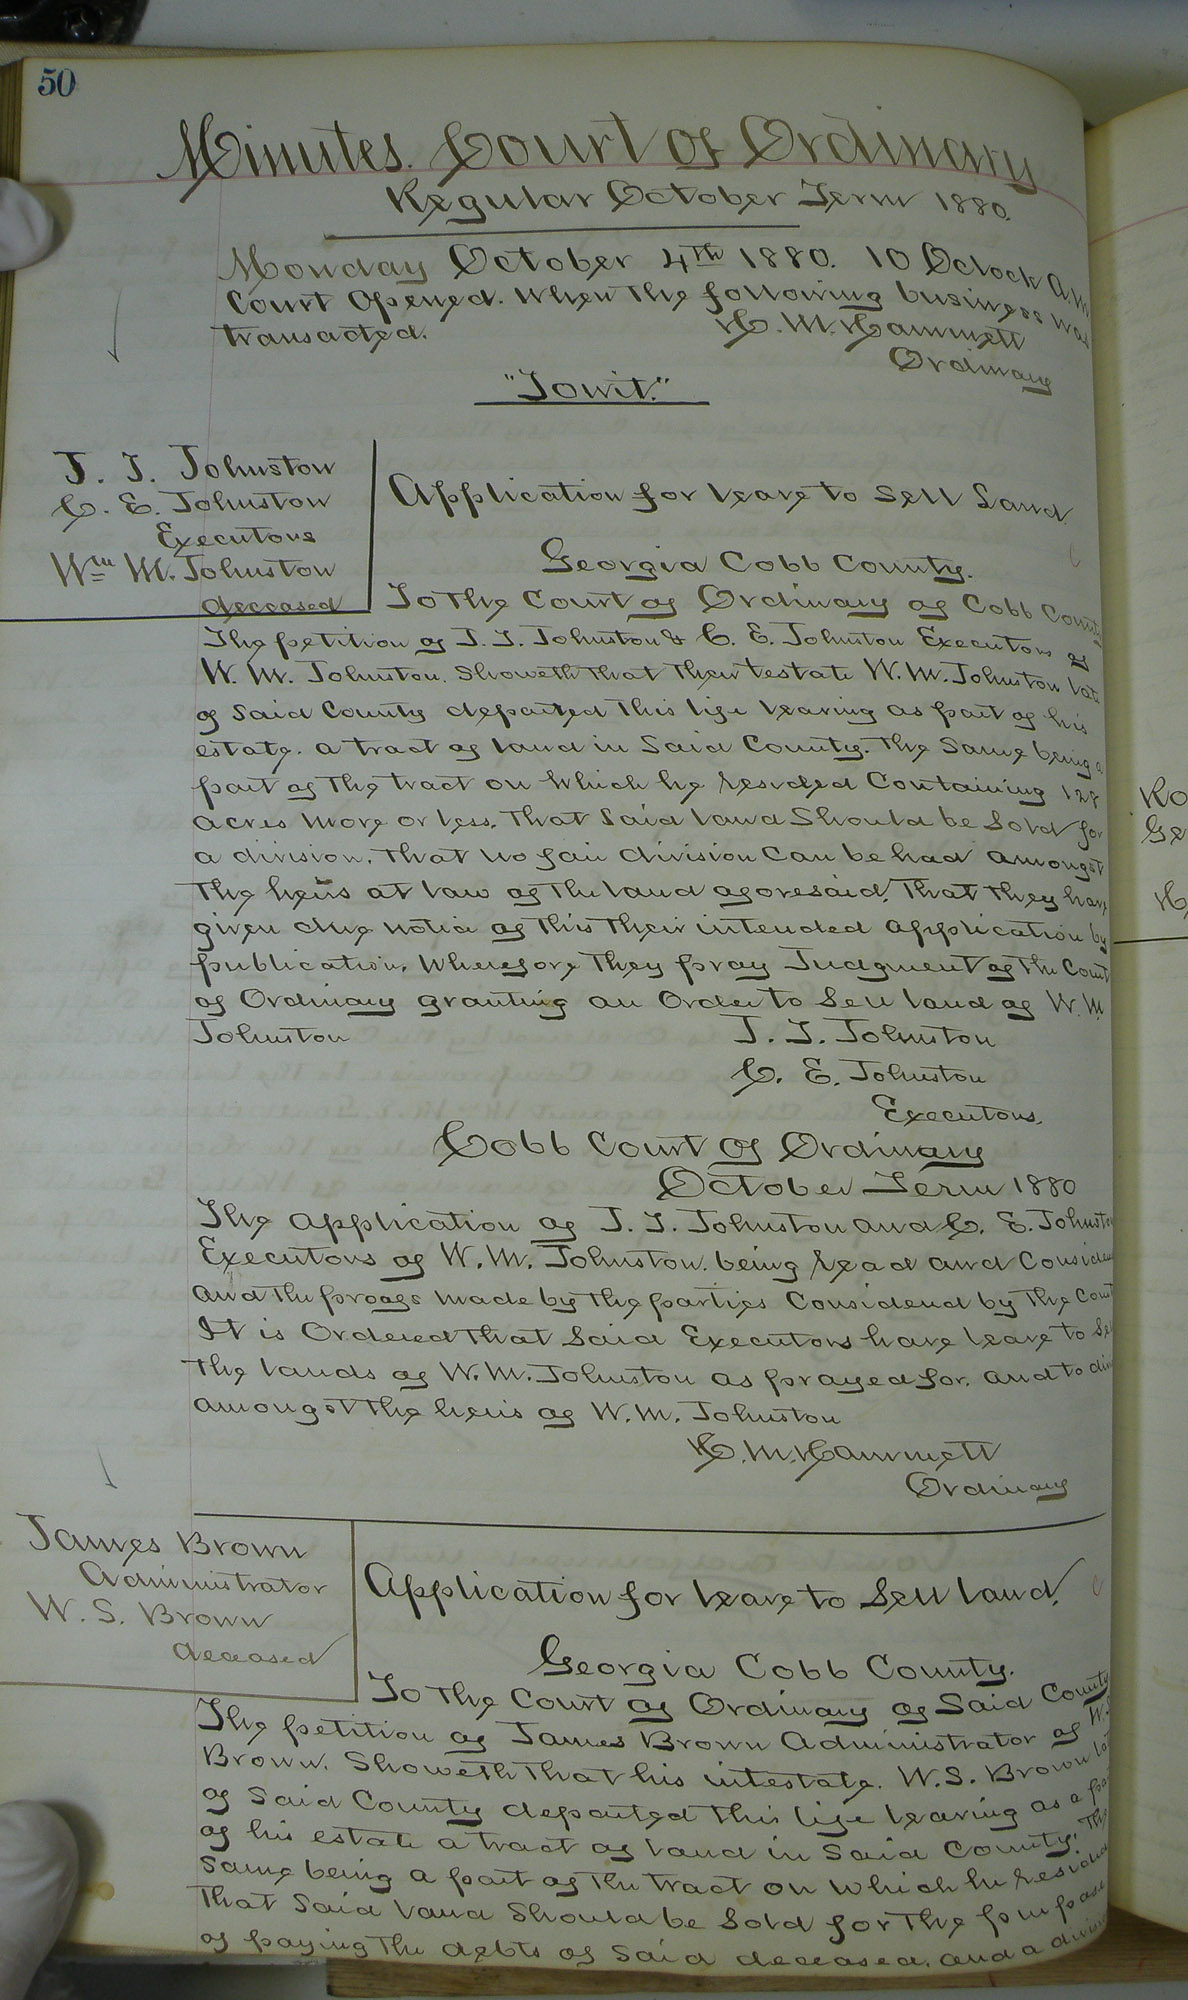 50
Minutes. Court of Ordinary
Regular October Term 1880.
Monday October 4th 1880. 10 Oclock A.M
Court Opened. When the following business was
transacted.
H. M. Hammett
Ordinary
"Towit."
J. T. Johnston
C. E. Johnston
Executors
Wm M. Johnston
deceased
Application for leave to Sell Land.
Georgia Cobb County.
To the Court of Ordinary of Cobb County
The petition of J. T. Johnston & C. E. Johnston Executors of
W. M. Johnston. Showeth that their testate W. M. Johnston late
of Said County departed this life leaving as part of his
estate. a tract of land in Said County. the Same being a
part of the tract on which he resided Containing 128
acres more or less. That Said land Should be Sold for
a division. that no fair division Can be had amongst
the heirs at law of the land aforesaid. that they have
given due notice of this their intended application by
publication. Wherefore they pray Judgment of the Court
of Ordinary granting an Order to Sell land of W. M.
Johnston
J. T. Johnston
C. E. Johnston
Executors.
Cobb Court of Ordinary
October Term 1880
The application of J. T. Johnston and C. E. Johnston
Executors of W. M. Johnston. being read and Considered
and the proofs made by the parties Considered by the Court
It is Ordered that Said Executors have leave to Sell
the lands of W. M. Johnston as prayed for. and to
amongst the heirs of W. M. Johnston
H. M. Hammett
Ordinary
James Brown
Administrator
W. S. Brown
deceased
Application for leave to Sell land.
Georgia Cobb County.
To the Court of Ordinary of Said County
The petition of James Brown Administrator of W. S.
Brown. Showeth that his intestate. W. S. Brown late
of Said County departed this life leaving as a part
of his estate a tract of land in Said County. The
Same being a part of the tract on which he resided
That Said land Should be Sold for the purpose
of paying the debts of Said deceased. and a
Ro
Ge
H